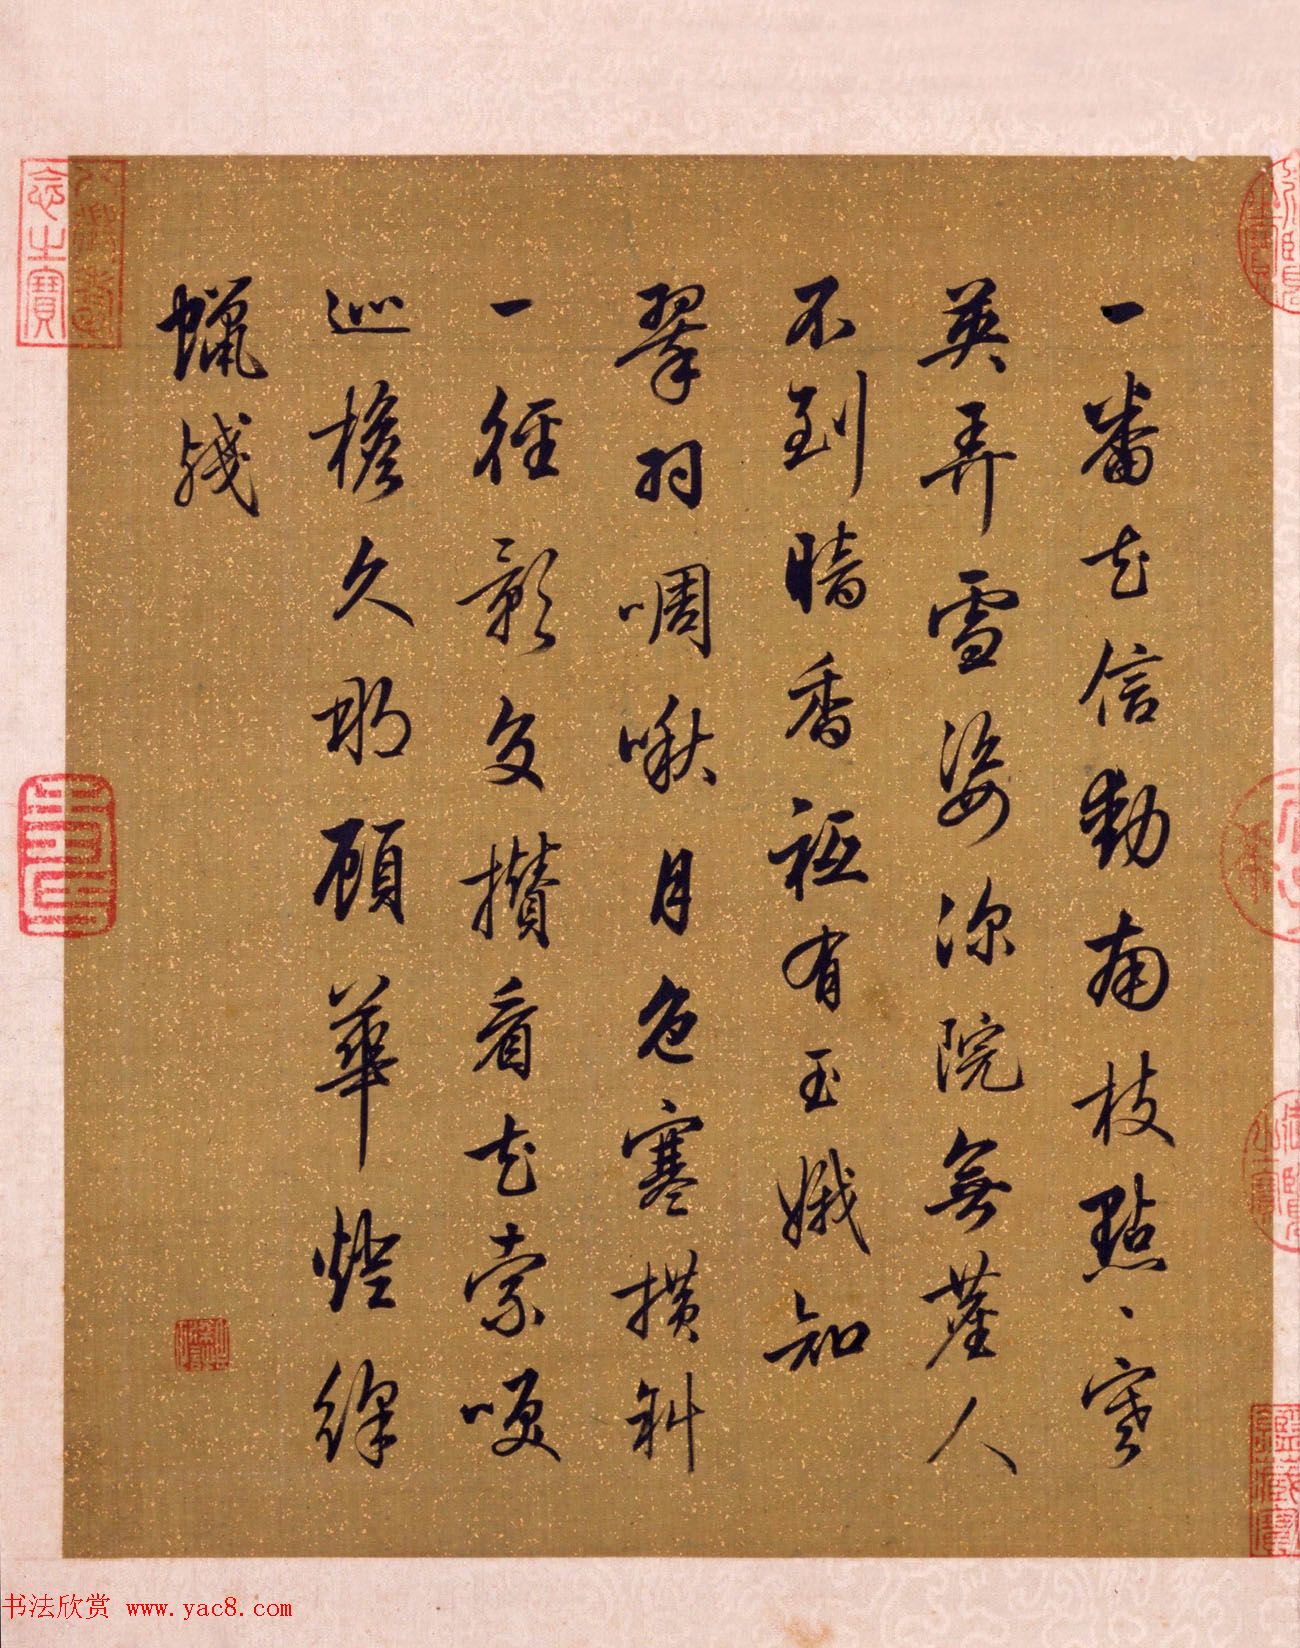 一番花信動南枝點、寒
英弄雪姿深院無塵人
不到暗香祗有玉娥知
翠羽啁啾月色寒橫斜
一徑影交攢看花索咲
巡檐久那顧華燈絳
蠟殘
八徵耄
念之寶
书法欣赏 www.yac8.com